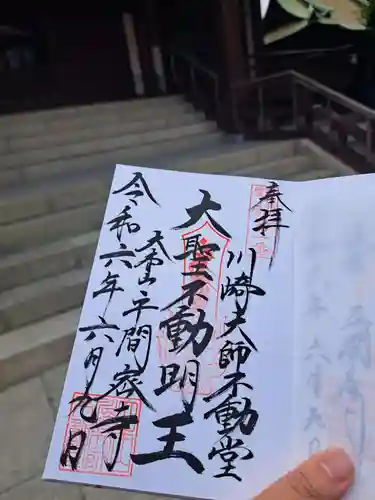 奉拝
川崎大師不動堂
大聖不動明王
大本山平間密寺
令和六年六月九日